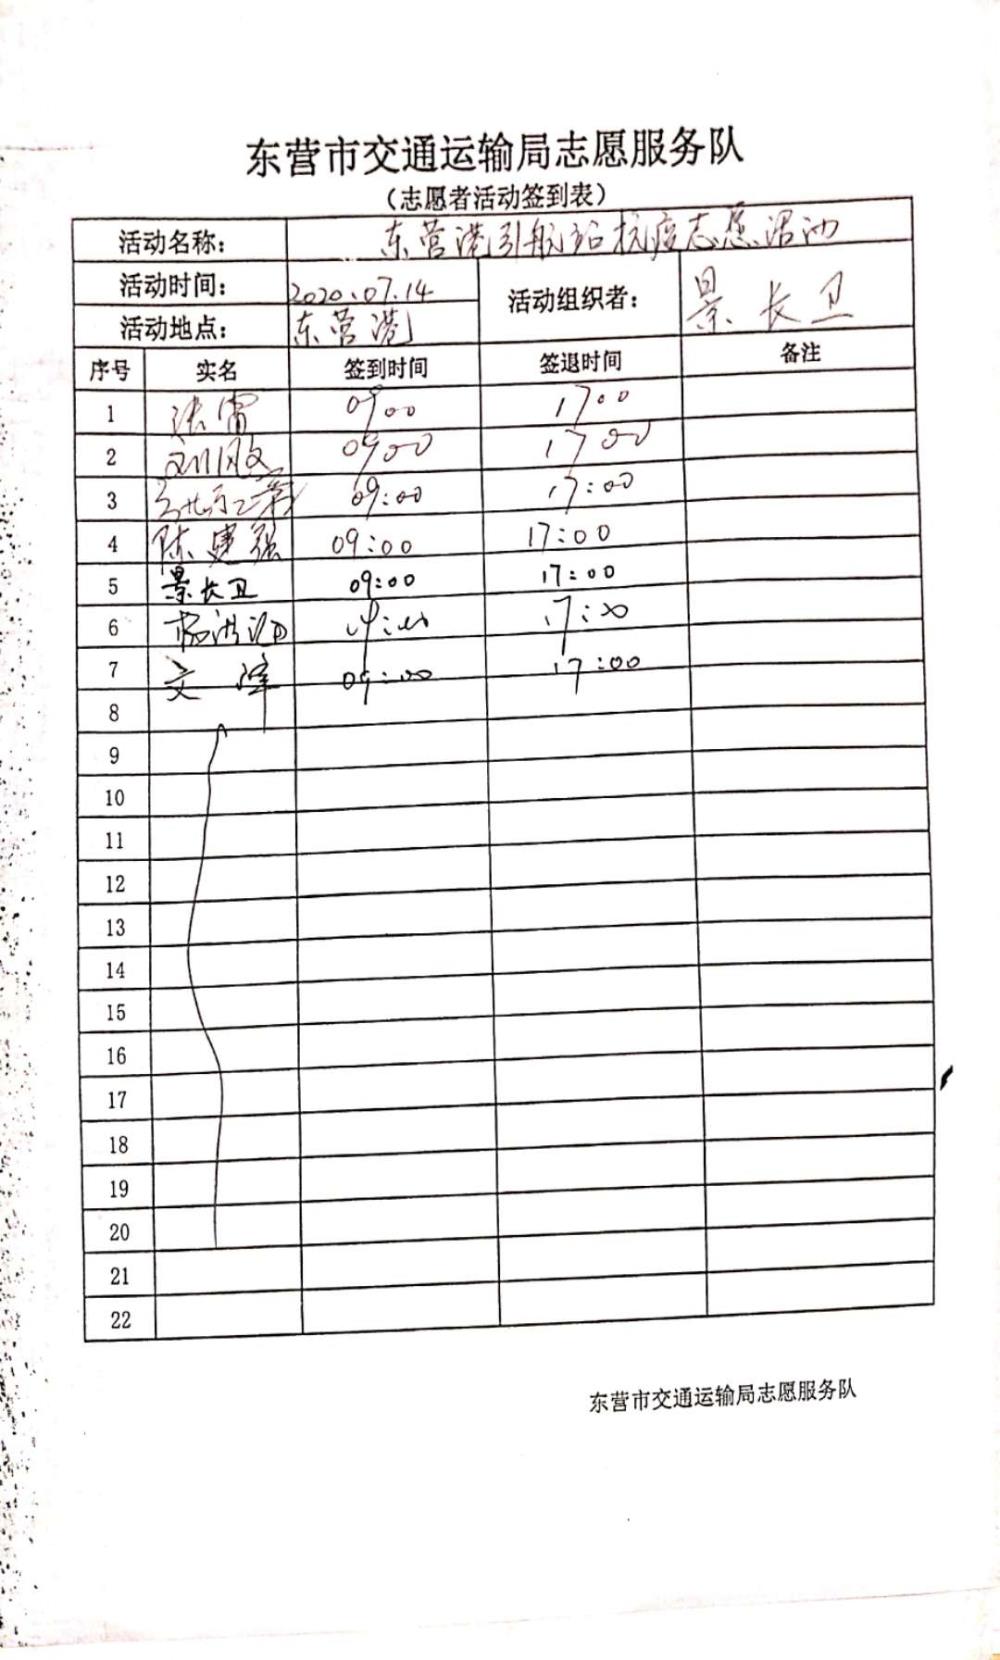 东营市交通运输局志愿服务队
(志愿者活动签到表)
活动名称： 东营港引航站抗疫志愿活动
活动时间： 2020.07.14 活动组织者： 景长卫
活动地点： 东营港
序号 实名 签到时间 签退时间 备注
1 0900 1700
2 0900 1700
3 09:00 17:00
4 陈建强 09:00 17:00
5 景长卫 09:00 17:00
6 17:00
7 09:00 17:00
8
9
10
11
12
13
14
15
16
17
18
19
20
21
22
东营市交通运输局志愿服务队